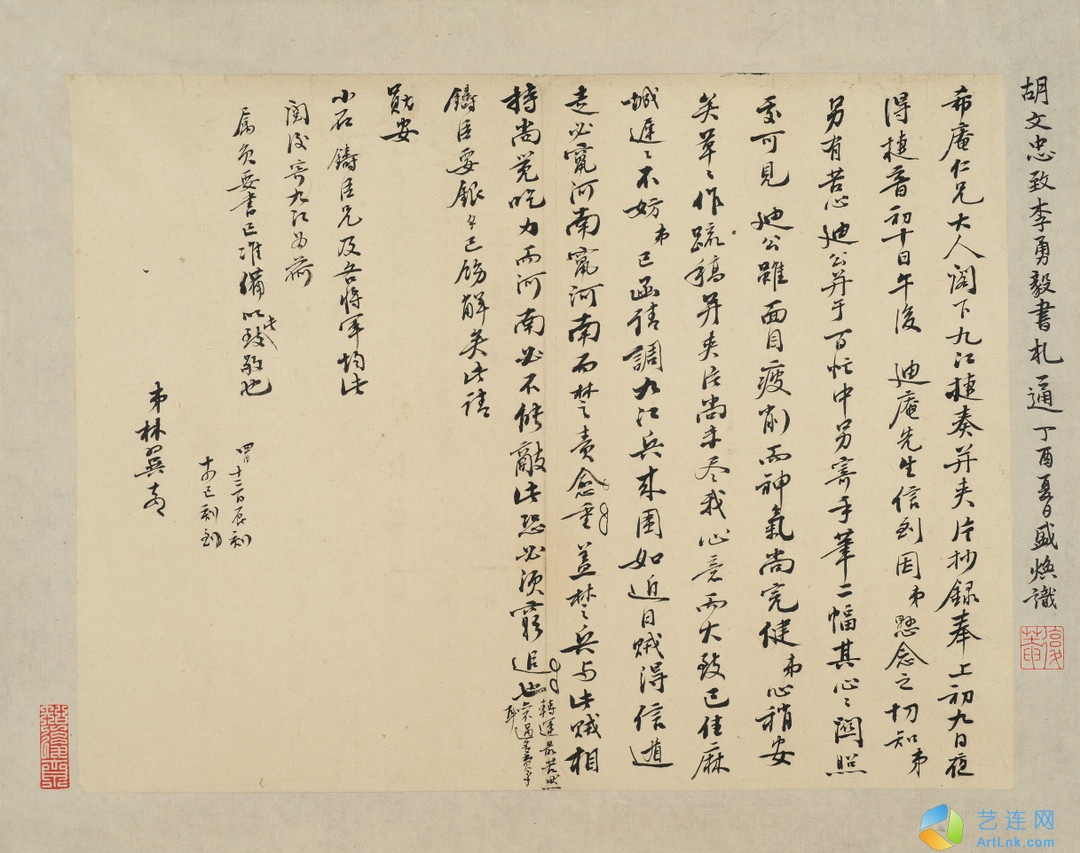 胡文忠致李勇毅書札一通 丁酉夏日盛煥識
希庵仁兄大人閣下九江捷奏并夾片抄録奉上初九日夜
得捷音初十日午後 迪庵先生信到因弟懸念之切知弟
另有苦心迪公并于百忙中另寄手筆二幅其心心關照
至可見 迪公雖面目瘦削而神氣尚完健弟心稍安
矣草草作疏稿并夾片尚未尽我心意而大致已佳麻
城遲遲不妨弟已函請調九江兵來圍如近日賊得信遁
走必竄河南竄河南而楚之責愈重蓋楚兵与此賊相
持尚覺吃力而河南必不能敵此恐必須窮追也
轉運最苦然
亦過
鑄臣要銀已飭解矣此請
勛安
小石鑄臣兄及各將軍均此
閱後寄九江為荷
弟林翼
四月十三日辰刻
十五日巳刻到
艺连网
ArtLnk.com